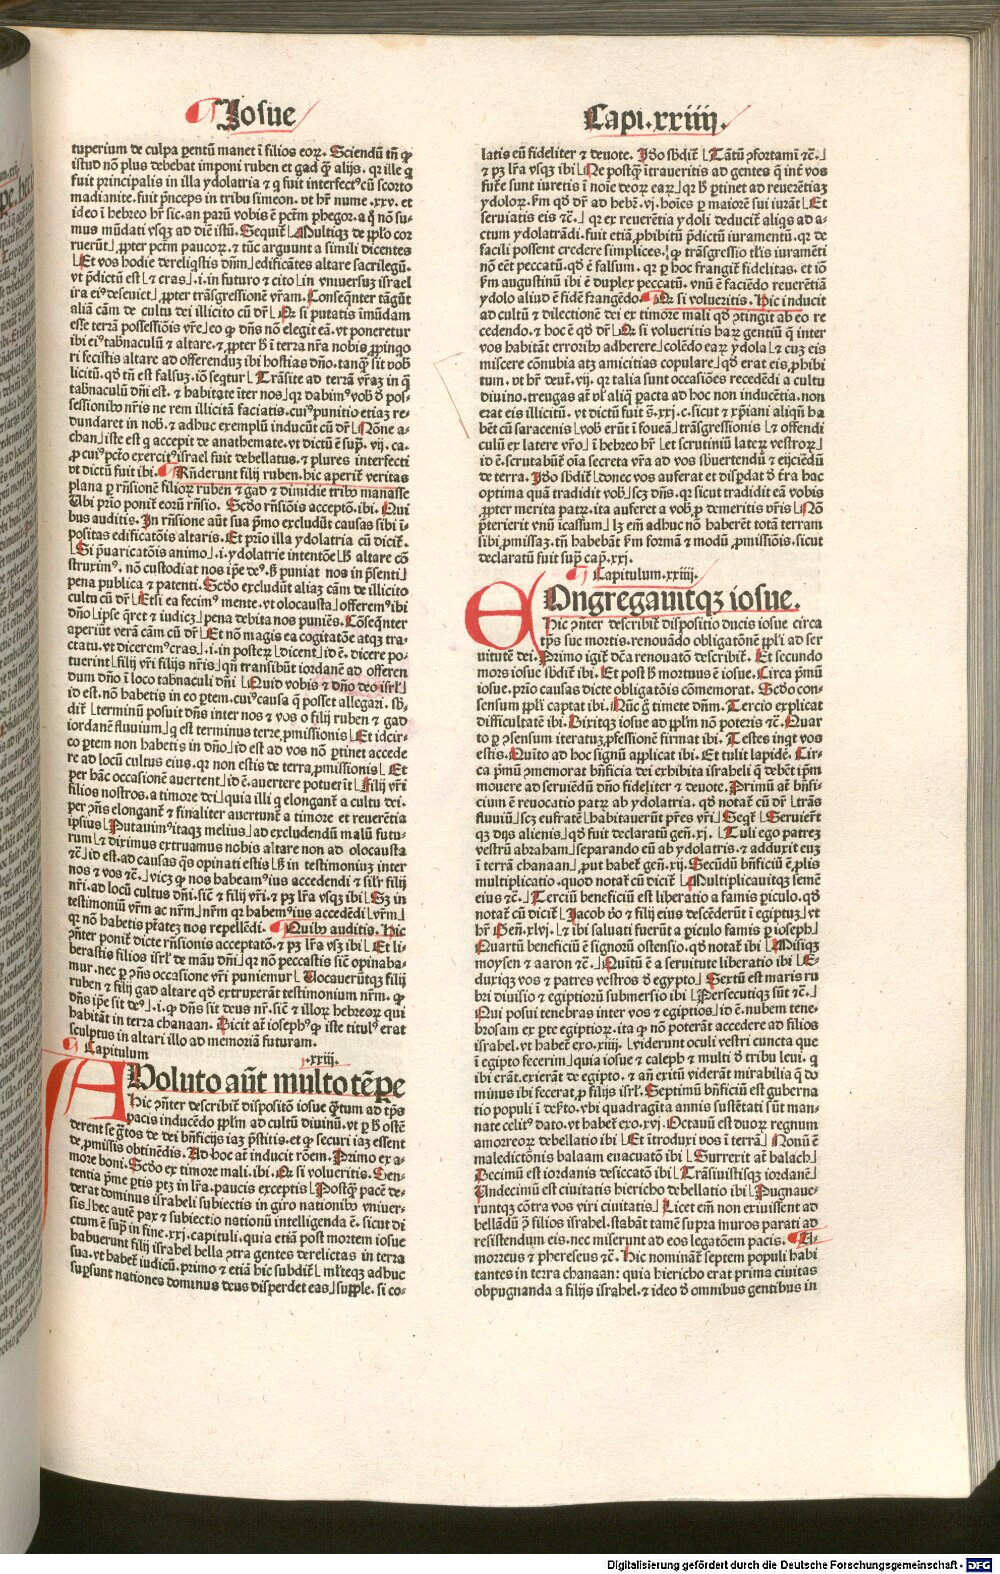 Iosue
tuperium de culpa parentū manet ī filios eoꝝ. Sciendū tñ ꝙ
istud nō plus debebat imponi ruben et gad ꝙ̄ alijs. qꝛ ille ꝗ
fuit principalis in illa ydolatria ⁊ ꝗ fuit interfectꝰ cū scorto
madianite. fuit pͥnceps in tribu simeon. vt hꝛ̄ nume .xxv. et
ideo ī hebreo hꝛ̄ sic. an parū vobis ē pctm̄ phegor. a ꝗ̊ nō su-
mus mūdati vsqꝫ ad diē istū. Sequit̄ Multiqꝫ de ꝓplo cor
ruerūt ꝓpter pctm̄ paucoꝝ. ⁊ tūc arguunt a simili dicentes
Et vos hodie dereliqstis dn̄m edificātes altare sacrilegū.
vt ꝓdictū est ⁊ cras .i. in futuro ⁊ cito in vniuersuꝫ israel
ira eiꝰ deseuiet ꝓpter trāsgressionē vr̄am. Conseqn̄ter tāgūt
aliā cām de cultu dei illicito cū dꝛ̄ Qꝛ si putatis īmūdam
esse terrā possessiōis vr̄e eo ꝙ dn̄s nō elegit eā. vt poneretur
ibi eiꝰ tabnaculū ⁊ altare. ⁊ ꝓpter ꝭ ī terra nr̄a nobis ꝓpinqo
ri fecistis altare ad offerenduꝫ ibi hostias dn̄o. tanqꝫ sit vobꝭ
licitū. qd̄ tn̄ est falsuꝫ. iō seqtur Trāsite ad terrā vr̄aꝫ in ꝗ̄
tabnaculū dn̄i est. ⁊ habitate īter nos qꝛ dabimꝰ vobꝭ ꝺ pos-
sessionibꝰ nr̄is ne rem illicitā faciatis. cuiꝰ punitio etiaꝫ re-
dundaret in nobꝭ. ⁊ adhuc exemplū inducūt cū dꝛ̄ Nōne a-
chan iste est ꝗ accepit de anathemate. vt dictū ē supͣ. vij. ca.
ꝓ cuiꝰ pctō exercitꝰ israel fuit debellatus. ⁊ plures interfecti
vt dictū fuit ibi. Rn̄derunt filij ruben. hic aperit̄ veritas
plana ꝑ rn̄sionē filioꝝ ruben ⁊ gad ⁊ dimidie tribꝰ manasse
Vbi prio ponit̄ eorū rn̄sio. Scdo rn̄siōis acceptō. ibi. Qui
bus auditis. In rn̄sione aūt sua pͥmo excludūt causas sibi ī-
positas edificatōis altaris. Et prio illa ydolatria cū dicit̄.
Si p̄uaricatōis animo .i. ydolatrie intentōe ꝭ altare cō
struximꝰ. nō custodiat nos ip̄e deꝰ. ꝭ puniat nos in p̄senti
pena publica ⁊ patenti. Scdo excludūt aliaꝫ cām de illicito
cultu cū dꝛ̄ Etsi ea fecimꝰ mente. vt olocausta offeremꝰ ibi
dn̄o ip̄se q̄ret ⁊ iudicꝫ pena debita nos puniēs. Cōseqn̄ter
aperiūt verā cām cū dꝛ̄ Et nō magis ea cogitatōe atqꝫ tra-
ctatu. vt diceremꝰ cras .i. in posteꝝ dicent id ē. dicere po-
tuerint filij vr̄i filijs nr̄is qn̄ transibūt iordanē ad offeren
dum dn̄o ī loco tabnaculi dn̄i Quid vobis ⁊ dn̄o deo isrl̄
id est. nō habetis in eo ꝑtem. cuiꝰ causa q̄ posset allegari. sb̄-
dit̄ terminū posuit dn̄s inter nos ⁊ vos o filij ruben ⁊ gad
iordanē fluuium ꝗ est terminus terre ꝓmissionis Et idcir-
co ꝑtem non habetis in dn̄o id est ad vos nō ꝑtinet accede
re ad locū cultus eius. qꝛ non estis de terra ꝓmissionis Et
per hāc occasionē auertent id ē. auertere poterūt filij vr̄i
filios nostros. a timore dei quia illi ꝗ elongant̄ a cultu dei.
per ꝯn̄s elongant̄ ⁊ finaliter auertunt̄ a timore et reuerētia
ipsius Putauimꝰ itaqꝫ melius ad excludendū malū futu-
rum ⁊ diximus extruamus nobis altare non ad olocausta
⁊c̄. id est. ad causas q̄s opinati estis ꝭ in testimoniuꝫ inter
nos ⁊ vos ⁊c̄. vicꝫ ꝙ nos habeamꝰ ius accedendi ⁊ silr̄ filij
nr̄i. ad locū cultus dn̄i. sic̄ ⁊ filij vr̄i. ⁊ pꝫ lr̄a vsqꝫ ibi Sꝫ in
testimoniū vr̄m ac nr̄m nr̄m qꝛ habemꝰ ius accedēdi vr̄m
qꝛ nō habetis pt̄ateꝫ nos repellēdi. Quibꝰ auditis. Hic
ꝯn̄ter ponit̄ dicte rn̄sionis acceptatō. ⁊ pꝫ lr̄a vsqꝫ ibi Et li-
berastis filios isrl̄ de manu dn̄i qꝛ nō peccastis sic̄ opinaba-
mur. nec ꝑ ꝯn̄s occasione vr̄i puniemur Vocaueruntqꝫ filij
ruben ⁊ filij gad altare qd̄ extruxerāt testimonium nr̄m. ꝙ
dn̄s ip̄e sit deꝰ .i. ꝙ dn̄s sit deus nr̄. sic̄ ⁊ illoꝝ hebreoꝝ qui
habitāt in terra chanaan. Dicit at̄ iosephꝰ ꝙ iste titulꝰ erat
sculptus in altari illo ad memoriā futuram.
Capitulum .xxiij.
AUoluto aūt multo tēpe
Hic ꝯn̄ter describit̄ dispositō iosue q̄tum ad tp̄s
pacis inducēdo ꝓplm̄ ad cultū diuinū. vt ꝑ ꝭ ostē
derent se g̊tos de dei bn̄ficijs iaꝫ p̄stitis. et ꝙ securi iaꝫ essent
de ꝓmissis obtinēdis. Ad hoc at̄ inducit rōem. Primo ex a-
more boni. Scdo ex timore mali. ibi. Qꝛ si volueritis. Sen-
tentia pͥme ꝑtis ptꝫ in lr̄a. paucis exceptis Postqꝫ pacē de-
derat dominus israheli subiectis in giro nationibꝰ vniuer-
sis hec autē pax ⁊ subiectio nationū intelligenda ē. sicut di
ctum ē supͣ in fine .xxj. capituli. quia etiā post mortem iosue
habuerunt filij israhel bella ꝯtra gentes derelictas in terra
sua. vt habet̄ iudicū. primo ⁊ etiā hic subdit̄ ml̄teqꝫ adhuc
supsunt nationes dominus deus disperdet eas supple. si co-
Capi .xxiiij.
latis eū fideliter ⁊ deuote. Ideo sb̄dit̄ Tātū ꝯfortamī ⁊c̄.
⁊ pꝫ lr̄a vsqꝫ ibi Ne postqꝫ ītraueritis ad gentes q̄ int̄ vos
futr̄e sunt iuretis ī noīe deoꝝ eaꝝ qꝛ ꝭ ꝑtinet ad reuerētiaꝫ
ydoloꝝ. ẜm qd̄ dꝛ̄ ad hebꝛ̄. vj. hoīes ꝑ maiorē sui iurāt Et
seruiatis eis ⁊c̄. qꝛ ex reuerētia ydoli deducit̄ aliqs ad a-
ctum ydolatrādi. fuit etiā ꝓhibitū p̄dictū iuramentū. qꝛ de
facili possent credere simplices. ꝙ trāsgressio tl̄is iuramēti
nō eēt peccatū. qd̄ ē falsum. qꝛ ꝑ hoc frangit̄ fidelitas. et iō
ẜm augustinū ibi ē dupleꝝ peccatū. vnū ē faciēdo reuerētiā
ydolo aliud ē fidē frangēdo. Qꝛ si volueritis. Hic inducit
ad cultū ⁊ dilectionē dei ex timore mali qd̄ ꝯtingit ab eo re
cedendo. ⁊ hoc ē qd̄ dꝛ̄ Qꝛ si volueritis haꝝ gentiū q̄ inter
vos habitāt erroribꝰ adherere colēdo eaꝝ ydola ⁊ cuꝫ eis
miscere cōnubia atqꝫ amicitias copulare qd̄ erat eis ꝓhibi
tum. vt hꝛ̄ deut̄. vij. qꝛ talia sunt occasiōes recedēdi a cultu
diuino. treugas at̄ vl̄ aliq̄ pacta ad hoc non inducētia. non
erat eis illicitū. vt dictū fuit s̄. xxj. c. sicut ⁊ xp̄iani aliqn̄ ha
bēt cū saracenis vobꝭ erūt ī foueā trāsgressionis ⁊ offendi
culū ex latere vr̄o ī hebreo hꝛ̄ et scrutiniū lateꝝ vestroꝝ
id ē. scrutabūt̄ oīa secreta vr̄a ad vos sb̄uertendū ⁊ eijciēdū
de terra. Ideo sb̄dit̄ donec vos auferat et disperdat ꝺ tr̄a hac
optima quā tradidit vobꝭ scꝫ dn̄s. qꝛ sicut tradidit eā vobis
ꝓpter merita patꝝ. ita auferet a vobꝭ ꝓ demeritis vr̄is Nō
p̄terierit vnū īcassum lꝫ em̄ adhuc nō haberēt totā terram
sibi ꝓmissaꝫ. tn̄ habebāt ẜm formā ⁊ modū ꝓmissiōis. sicut
declaratū fuit supͣ cap̄. xxj.
Capitulum .xxiiij.
COngregauitqꝫ iosue.
Hic ꝯn̄ter describit̄ dispositio ducis iosue circa
tp̄s sue mortis. renouādo obligatōnē ꝓpli ad ser
uitutē dei. Primo igit̄ dc̄a renouatō describit̄. Et secundo
mors iosue sb̄dit̄ ibi. Et post ꝭ mortuus ē iosue. Circa pͥmū
iosue. prio causas dicte obligatōis cōmemorat. Scdo con-
sensum ꝓpli captat ibi. Nūc g̊ timete dn̄m. Tercio explicat
difficultatē ibi. Dixitqꝫ iosue ad ꝓplm̄ nō poteris ⁊c̄. Quar
to ꝑ ꝯsensum iteratuꝫ ꝓfessionē firmat ibi. Testes inqt vos
estis. Quīto ad hoc signū applicat ibi. Et tulit lapidē. Cir-
ca pͥmū ꝯmemorat bn̄ficia dei exhibita israheli q̄ debēt ip̄m
mouere ad seruiēdū dn̄o fideliter ⁊ deuote. Primū at̄ bn̄fi-
cium ē reuocatio patꝝ ab ydolatria. qd̄ notat̄ cū dꝛ̄ trās
fluuiū scꝫ eufratē habitauerūt pr̄es vr̄i Seqt̄ Seruierūt
qꝫ dijs alienis qd̄ fuit declaratū gen̄. xj. Tuli ego patreꝫ
vestrū abraham separando eū ab ydolatris. ⁊ adduxit euꝫ
ī terrā chanaan ꝓut habet̄ gen̄. xij. Secūdū bn̄ficiū ē ꝓlis
multiplicatio. quod notat̄ cū dicit̄ Multiplicauitqꝫ semē
eius ⁊c̄. Terciū beneficiū est liberatio a famis ꝑiculo. qd̄
notat̄ cū dicit̄ Iacob ꝟo ⁊ filij eius descēderūt ī egiptuꝫ vt
hꝛ̄ Gen̄. xlvj. ⁊ ibi saluati fuerūt a ꝑiculo famis ꝑ ioseph
Quartū beneficiū ē signorū ostensio. qd̄ notat̄ ibi Misiqꝫ
moysen ⁊ aaron ⁊c̄. Quītū ē a seruitute liberatio ibi E-
duxiqꝫ vos ⁊ patres vestros ꝺ egypto Sextū est maris ru
bri diuisio ⁊ egiptiorū submersio ibi Persecutiqꝫ sūt ⁊c̄.
Qui posui tenebras inter vos ⁊ egiptios id ē. nubem tene-
brosam ex ꝑte egiptioꝝ. ita ꝙ nō poterāt accedere ad filios
israhel. vt habet̄ exo. xiiij. viderunt oculi vestri cuncta que
ī egipto fecerim quia iosue ⁊ caleph ⁊ multi ꝺ tribu leui. ꝗ
ibi erāt. exierāt de egipto. ⁊ an̄ exitū viderāt mirabilia q̄ do
minus ibi fecerat ꝓ filijs isrl̄. Septimū bn̄ficiū est guberna
tio populi ī deserto. vbi quadragīta annis sustētati sūt man-
nate celitꝰ dato. vt habet̄ exo. xvj. Octauū est duoꝝ regnum
amorreoꝝ debellatio ibi Et ītroduxi vos ī terrā Nonū ē
maledictōnis balaam euacuatō ibi Surrexit at̄ balach
Decimū est iordanis desiccatō ibi Trāsiuistisqꝫ iordanē
Undecimū est ciuitatis hiericho debellatio ibi Pugnaue-
runtqꝫ cōtra vos viri ciuitatis Licet em̄ non exiuissent ad
bellādū ꝯ̄ filios israhel. stabāt tamē supra muros parati ad
resistendum eis. nec miserunt ad eos legatōem pacis. A-
morreus ⁊ phereseus ⁊c̄. Hic nominat̄ septem populi habi
tantes in terra chanaan: quia hiericho erat prima ciuitas
obpugnanda a filijs israhel. ⁊ ideo ꝺ omnibus gentibus in
Digitalisierung gefördert durch die Deutsche Forschungsgemeinschaft - DFG